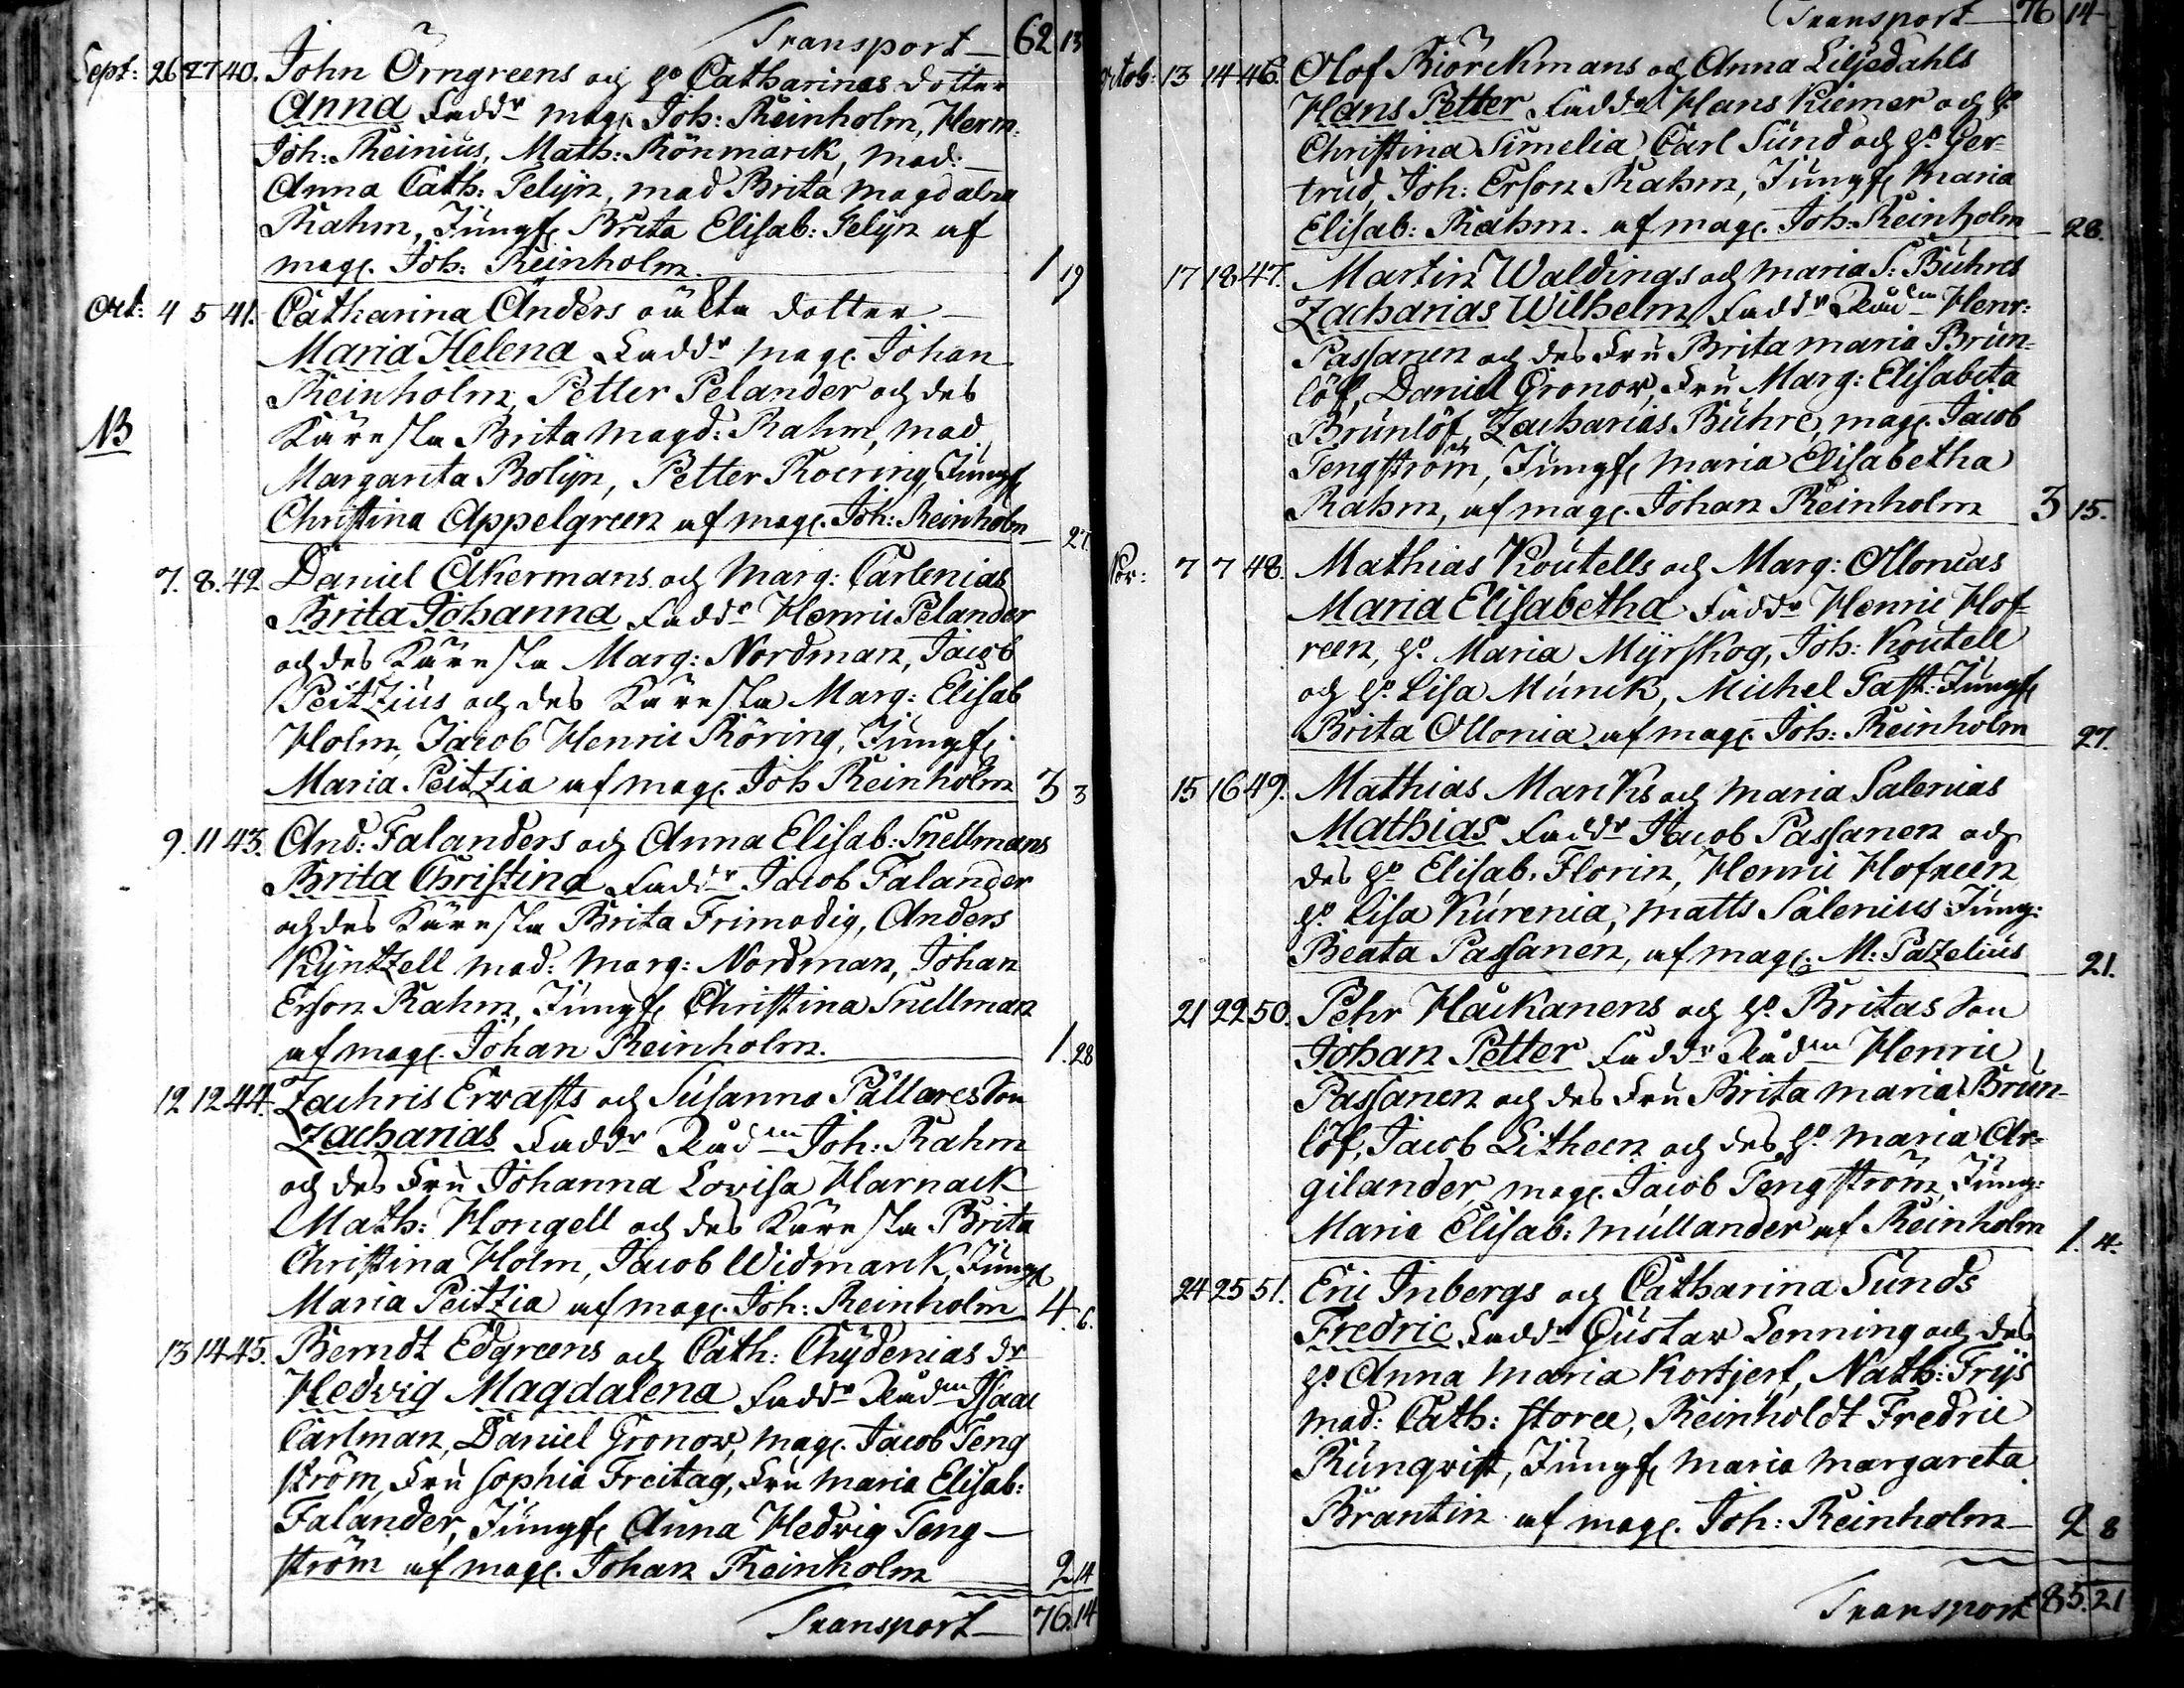 Transport 62 13
Sept: 26 27 40. John Örngreens och h. Catharinas dotter
Anna Faddr mag. Joh: Reinholm, Herm:
Joh: Reinius, Math: Rönmarck, mad:
Anna Cath: Pelijn, mad Brita Magdalna
Rahm, Jungf. Brita Elisab: Pelijn af
mag. Joh: Reinholm. 1 19
Oct: 4 5 41. Catharina Anders oäkta dotter
Maria Helena Faddr mag. Johan
Reinholm, Petter Pelander och des
NB Käresta Brita Magd: Rahm, mad.
Margareta Bolijn, Petter Roering, Jungf
Christina Appelgreen af mag. Joh: Reinholm 27.
7. 8. 42. Daniel Åkermans och Marg: Carlenias
Brita Johanna Faddr Henric Pelander
och des Käresta Marg: Nordman, Jacob
Peitzius och des Käresta Marg: Elisab
Holm, Jacob Henric Röring, Jungf.
Maria Peitzia af mag. Joh Reinholm 3 3
9. 11 43. And: Falanders och Anna Elisab: Snellmans
Brita Christina Faddr Jacob Falander
och des Käresta Brita Frimodig, Anders
Kyntzell mad: Marg: Nordman, Johan
Erson Rahm, Jungf. Christina Snellman
af mag. Johan Reinholm. 1. 28
12 12 44. Zachris Erwasts och Susanna Pallares Son
Zacharias Faddr Rådm Joh: Rahm
och des Fru Johanna Lovisa Harnack
Math: Hongell och des Käresta Brita
Christina Holm, Jacob Widmarck, Jungf
Maria Peitzia af mag. Joh: Reinholm 4. 6.
13 14 45. Berndt Edgreens och Cath: Chydenias dr
Hedvig Magdalena Faddr Rådm Isaac
Carlman, Daniel Gronow, mag. Jacob Teng
ström, Fru Sophia Freitag, Fru Maria Elisab:
Falander, Jungf. Anna Hedvig Teng-
ström af mag. Johan Reinholm 2 14
Transport 76. 14
Transport 76 14
Octob: 13 14 46. Olof Biörckmans och Anna Liljedahls
Hans Petter Faddr Hans Kiemer och h.
Christina Simelia, Carl Sund och h. Ger-
trud, Joh: Erson Rahm, Jungf. Maria
Elisab: Rahm. af mag. Joh: Reinholm 28.
17 18 47. Martin Waldings och Maria S: Buhres
Zacharias Wilhelm Faddr Rådm Henr:
Passanen och des Fru Brita Maria Brun-
löf, Daniel Gronow, Fru Marg: Elisabeta
Brunlöf, Zacharias Buhre, mag. Jacob
Tengström, Jungf. Maria Elisabetha
Rahm, af mag. Johan Reinholm 3 15.
Nov: 7 7 48. Mathias Koutells och Marg: Ollonias
Maria Elisabetha Faddr Henric Hof-
reen, h. Maria Myrskog, Joh: Koutell
och h. Lisa Munck, Michel Tast: Jungf.
Brita Ollonia af mag. Joh: Reinholm 27.
15 16 49. Mathias Marcks och Maria Salenias
Mathias Faddr Jacob Passanen och
des h. Elisab. Florin, Henric Hofreen
h. Lisa Kurenia, Matts Salenius Jung:
Beata Passanen, af mag. M: Pazelius 21.
21 22 50. Pehr Hackanens och h. Britas Son
Johan Petter Faddr Rådm Henric
Passanen och des Fru Brita Maria Brun-
löf, Jacob Litheen och des h. Maria Ar-
gilander, mag. Jacob Tengström, Jung:
Maria Elisab: Mullander af Reinholm 1. 4.
24 25 51. Eric Inbergs och Catharina Sunds
Fredric Faddr Gustaw Lenning och des
h. Anna Maria Kortjerf, Nath: Frijs
mad: Cath: Storee, Reinholdt Fredric
Runqvist, Jungf. Maria Margareta
Brantin af mag. Joh: Reinholm 2 8
Transport 85. 21